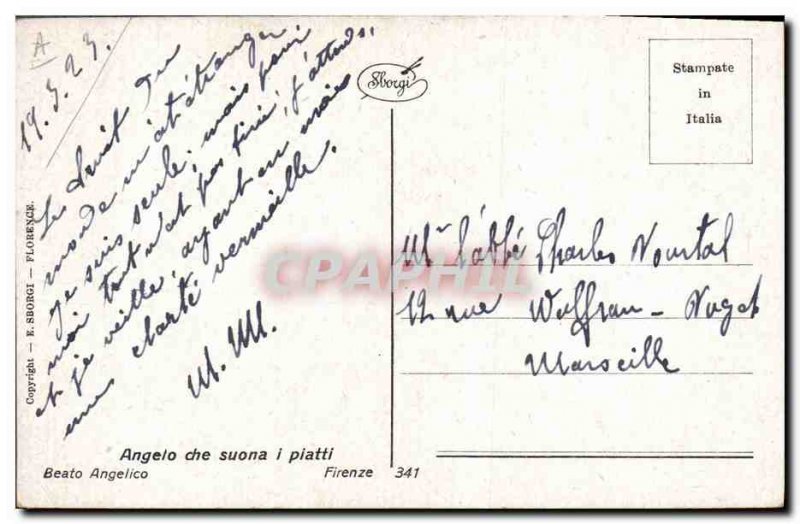 A
19.3.23.
Le bruit du
monde m'est étranger.
Je suis seule, mais pour
moi tout n'est pas fini, j'attends,
et je veille, ayant en mains
une clarté vermeille.
M. M.
Copyright — E. SBORGI — FLORENCE.
Sborgi
Stampate
in
Italia
Mr l'abbé Charles
12 rue Wulfran - Puget
Marseille
CPAPHIL
Angelo che suona i piatti
Beato Angelico Firenze 341